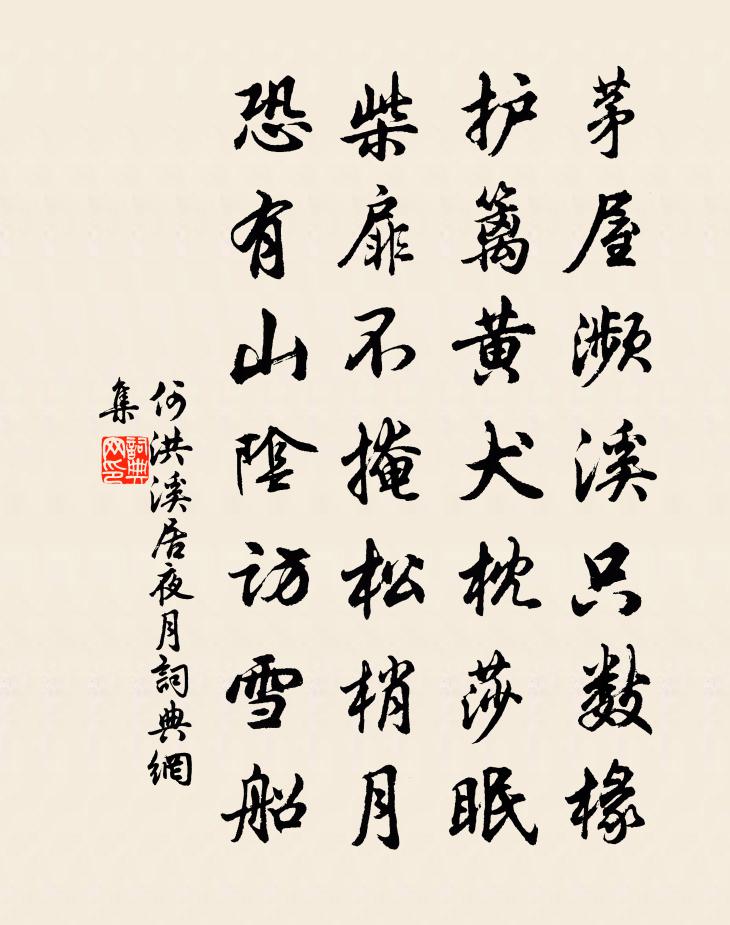 茅屋濒溪只数椽
护篱黄犬枕莎眠
柴扉不掩松梢月
恐有山陰访雪船
何洪溪居夜月詞典網
集
詞典網印